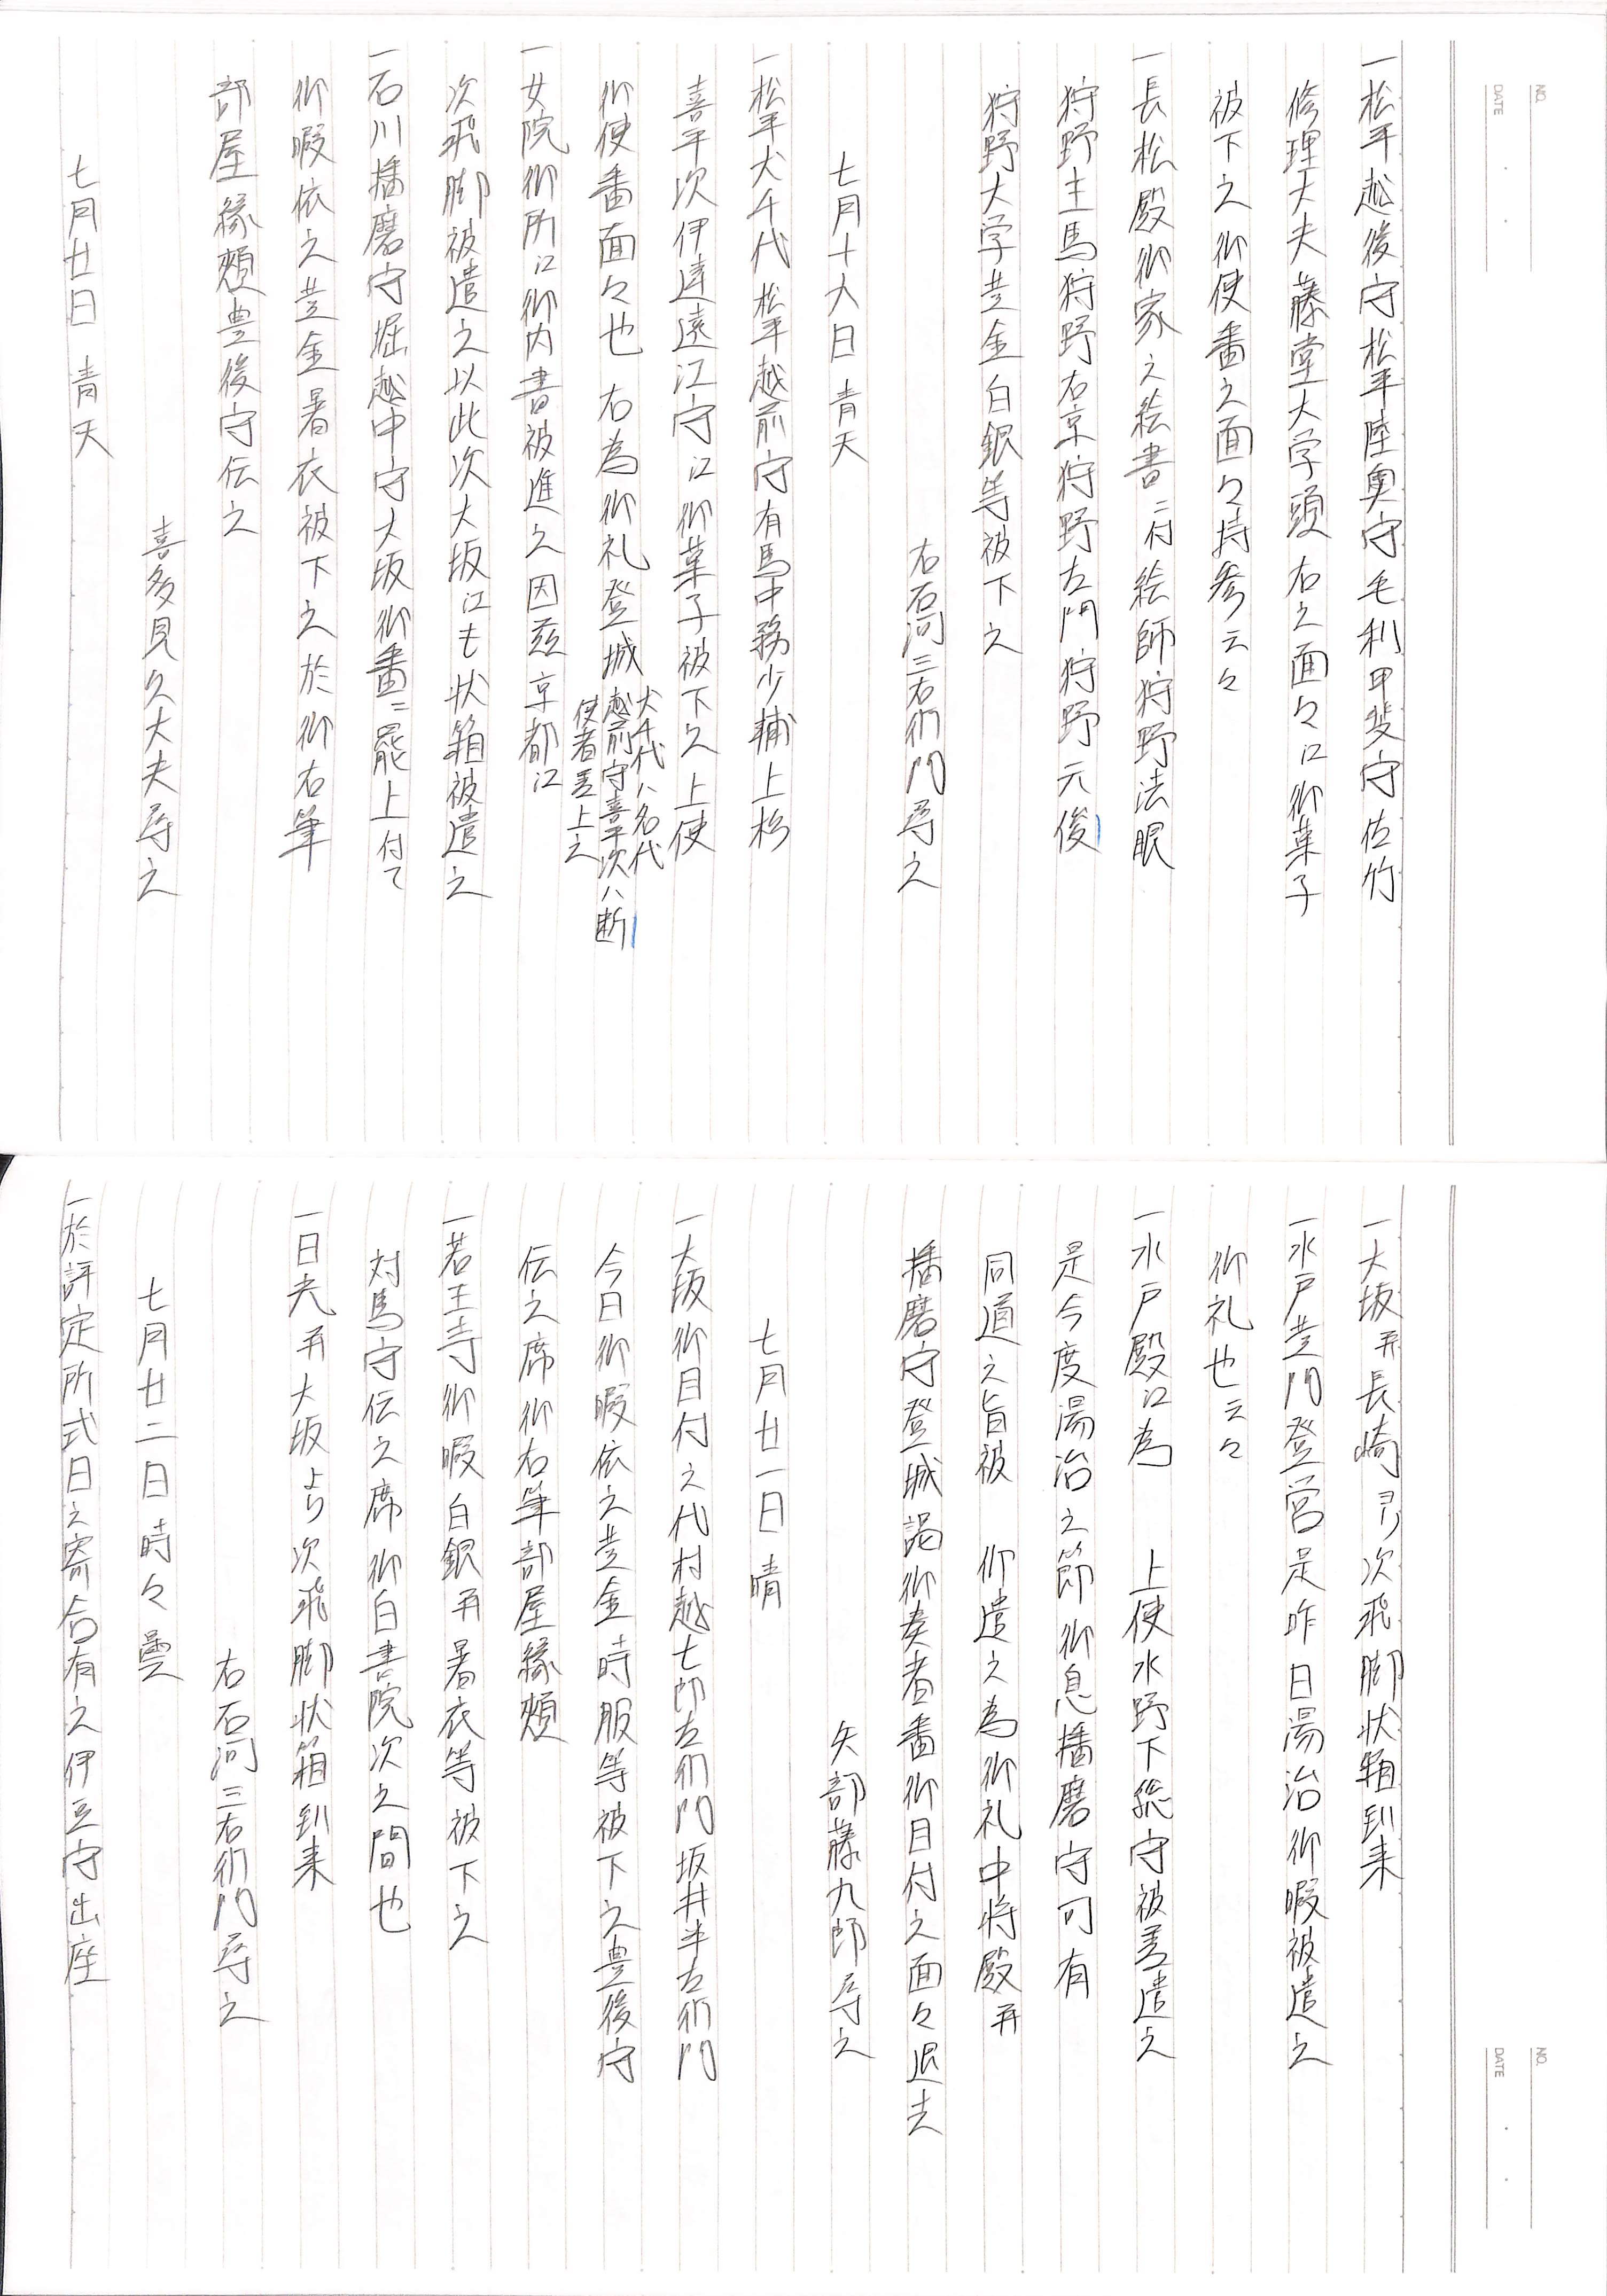 一松平越後守松平陸奥守毛利甲斐守佐竹
修理大夫藤堂大学頭右之面々江御菓子
被下之御使番之面々持参云々
一長松殿御家之絵書ニ付絵師狩野法眼
狩野主馬狩野右京狩野左門狩野元俊
狩野大学並金白銀等被下之
右石河三右衛門尋之
七月十九日 青天
一松平犬千代松平越前守有馬中務少輔上杉
喜平次伊達遠江守江御菓子被下之上使
御使番面々也 右為御礼登城 犬千代ハ名代
越前守喜平次ハ断
使者差上之
一女院御所江御内書被進之因茲京都江
次飛脚被遣之以此次大坂江も状箱被遣之
一石川播磨守堀越中守大坂御番ニ罷上付て
御暇依之並金暑衣被下之於御右筆
部屋縁頬豊後守伝之
喜多見久大夫尋之
七月廿日 青天
一大坂并長崎ヨリ次飛脚状箱到来
一水戸並門登営是昨日湯治御暇被遣之
御礼也云々
一水戸殿江為 上使水野下総守被差遣之
是今度湯治之節御息播磨守可有
同道之旨被 仰遣之為御礼中将殿并
播磨守登城謁御奏者番御目付之面々退去
矢部藤九郎尋之
七月廿一日 晴
一大坂御目付之代村越七郎左衛門坂井半左衛門
今日御暇依之並金時服等被下之豊後守
伝之席御右筆部屋縁頬
一若王寺御暇白銀并暑衣等被下之
対馬守伝之席御白書院次之間也
一日光并大坂より次飛脚状箱到来
右石河三右衛門尋之
七月廿二日 時々曇
一於評定所式日之寄合有之伊豆守出座
NO.
DATE
NO.
DATE